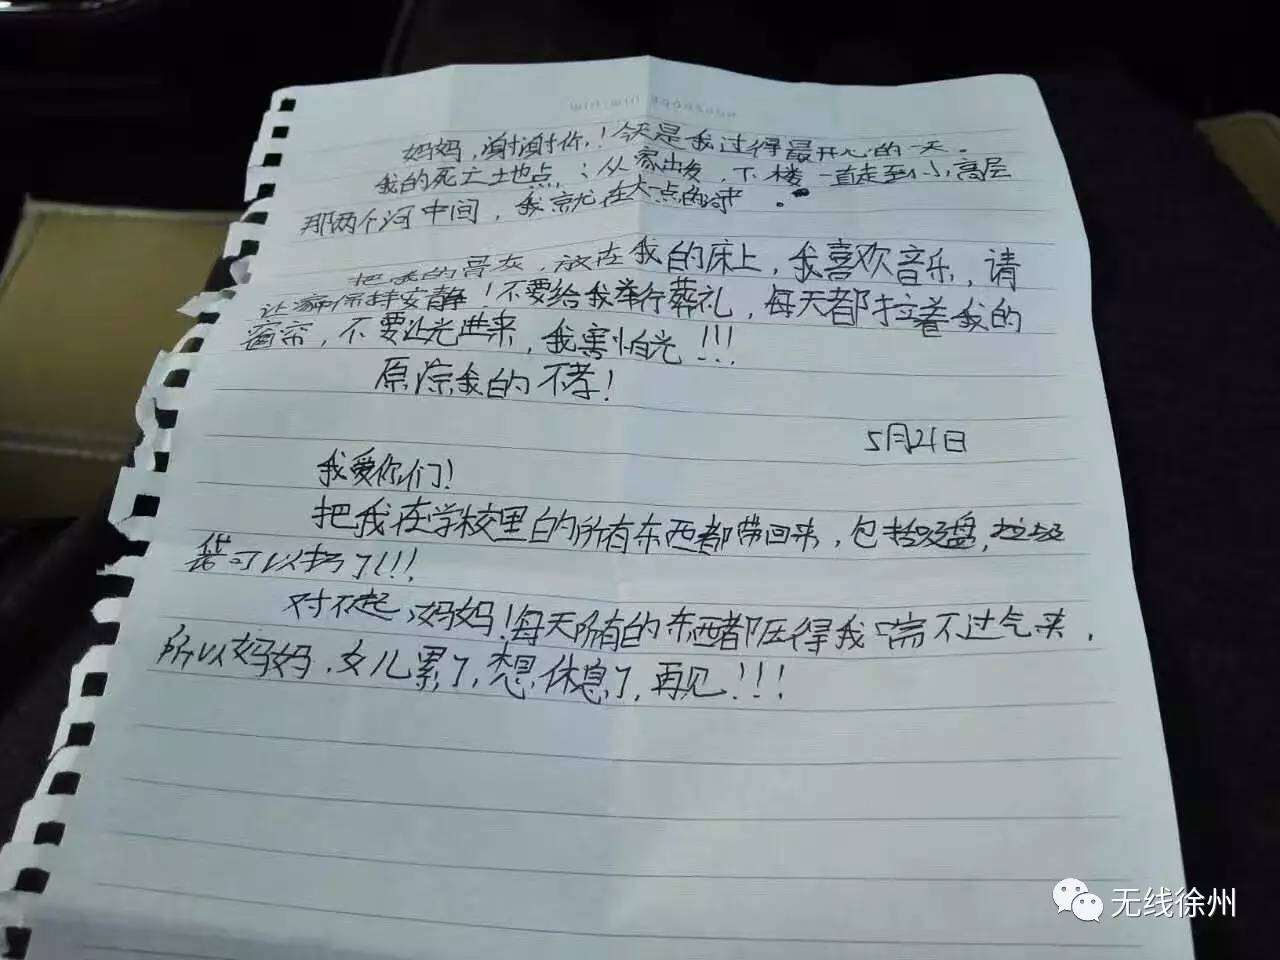 妈妈，谢谢你！今天是我过得最开心的一天。
我的死亡地点：从家出发，下楼一直走到小高层
那两个河中间，我就在大一点的河中。
把我的骨灰，放在我的床上，我喜欢音乐，请
让家保持安静！不要给我举行葬礼，每天都拉着我的
窗帘，不要让光进来，我害怕光！！！
原谅我的不孝！
5月21日
我爱你们！
把我在学校里的所有东西都带回来，包括U盘，垃圾
袋可以扔了！！！
对不起，妈妈！每天所有的东西都压得我喘不过气来，
所以妈妈，女儿累了，想休息了，再见！！！
无线徐州